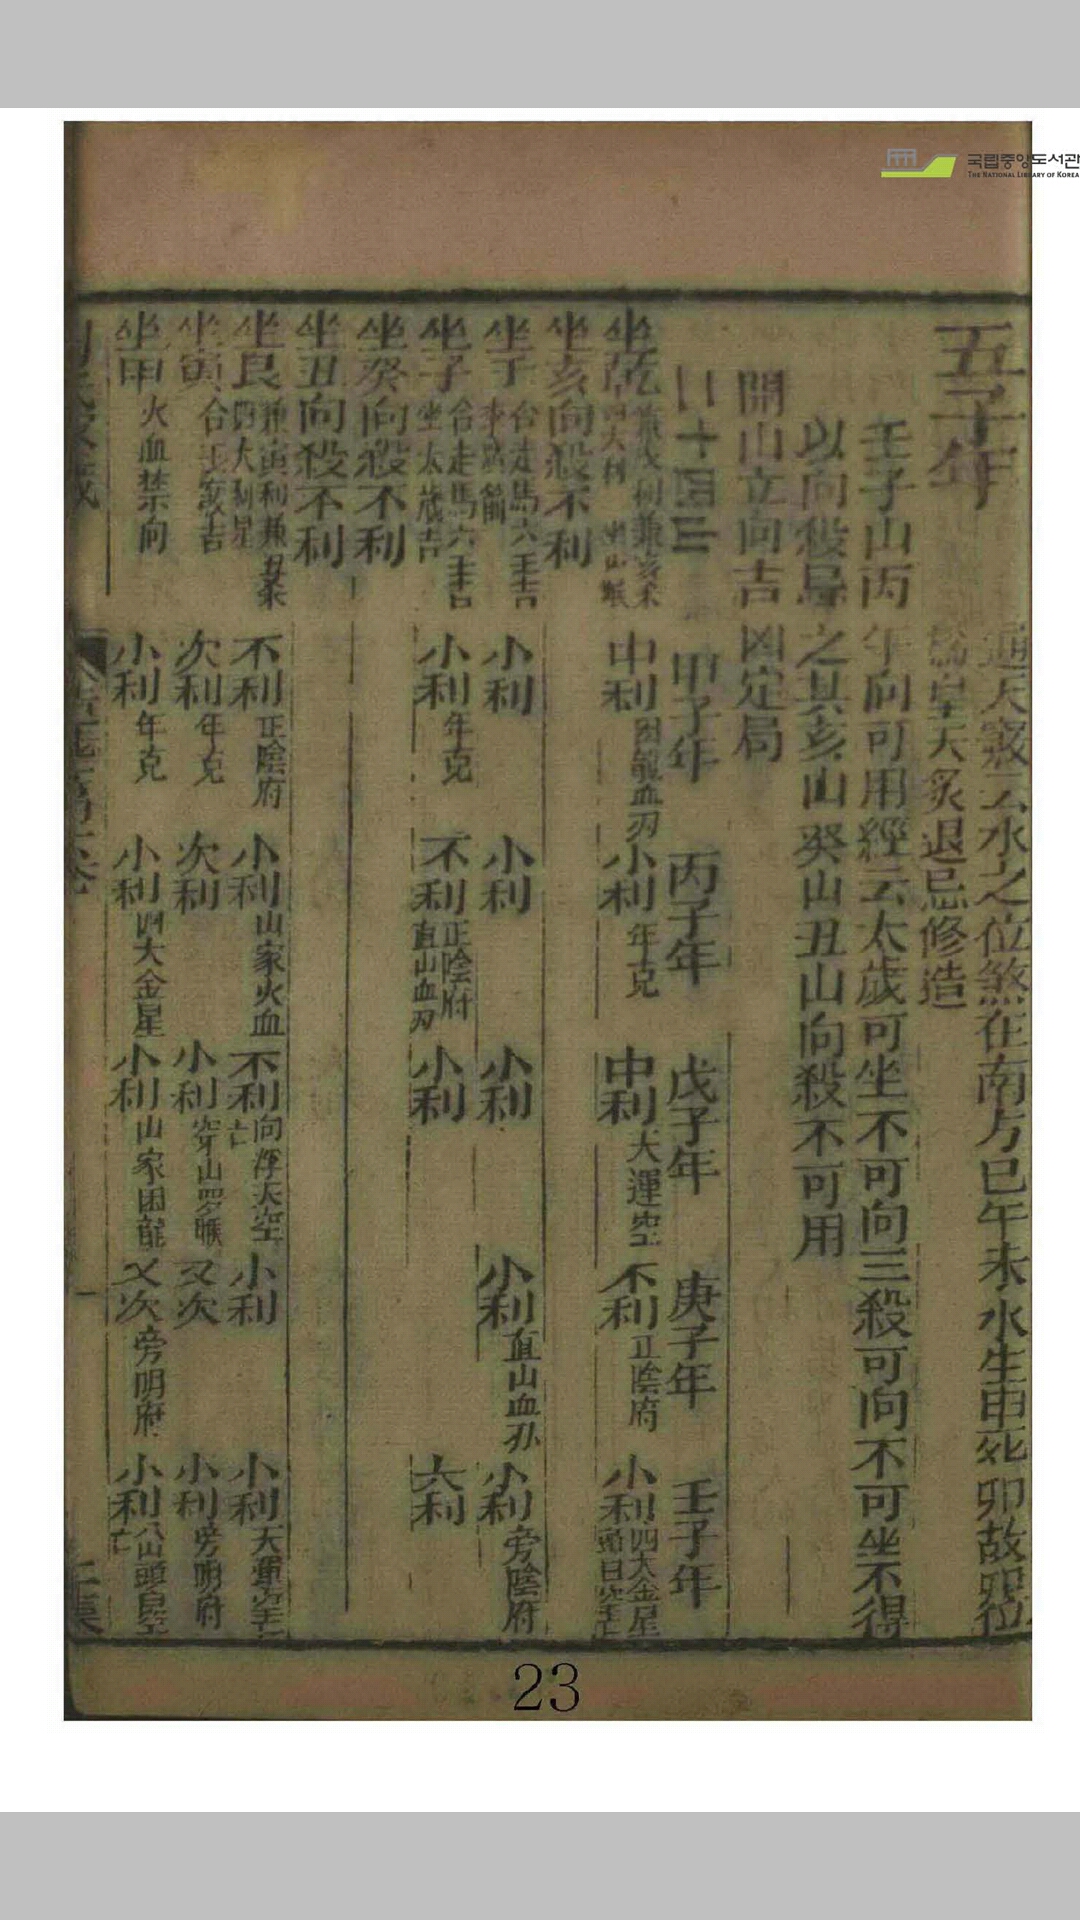 국립중앙도서관
THE NATIONAL LIBRARY OF KOREA
五子年
通天竅云水之位煞在南方巳午未水生申死卯故卯位
為皇天炙退忌修造
壬子山丙午向可用經云太歲可坐不可向三殺可向不可坐不得
以向殺忌之其亥山癸山丑山向殺不可用
開山立向吉凶定局
二十四山 甲子年 丙子年 戊子年 庚子年 壬子年
坐乾 中利 困龍血刃 小利 年克 中利 大運空 不利 正陰府 小利 四大金星
坐亥向殺不利
坐壬 合走馬六壬吉 小利 小利 小利 小利 直山血刃 小利 旁陰府
坐子 合走馬六壬吉 坐太歲吉 小利 年克 不利 正陰府 直山血刃 小利 大利
坐癸向殺不利
坐丑向殺不利
坐艮 兼寅利兼丑 不利 正陰府 小利 山家火血 不利 向浮天空亡 小利 小利 天運空亡
坐寅 次利 年克 次利 小利 穿山罗睺 又次 小利 旁明府
坐甲 火血禁向 小利 年克 小利 四大金星 小利 山家困龍 又次 旁明府 小利 八山頭白空亡
23